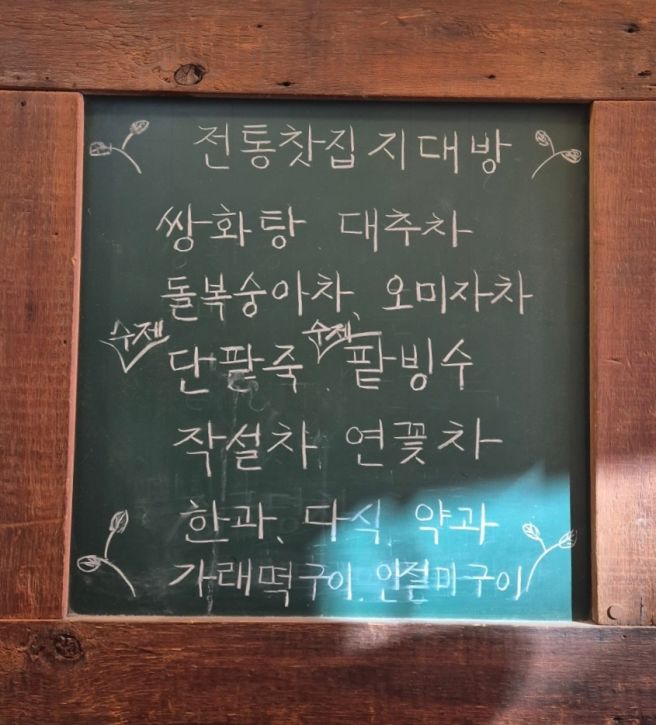 전통찻집 지대방
쌍화탕, 대추차
돌복숭아차, 오미자차
수제 단팥죽, 수제 팥빙수
작설차, 연꽃차
한과, 다식, 약과
가래떡구이, 인절미구이